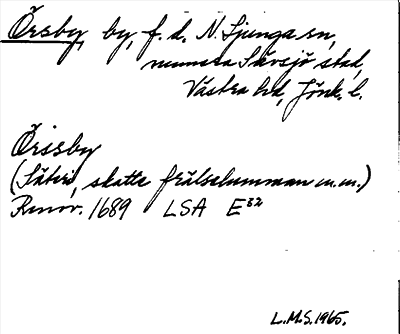 Örsby, by, f. d. N. Ljunga sn,
numera Sävsjö stad,
Västra hd, Jönk. l.
Örssby
(Säteri, skatte frälsehemman m.m.)
Renov. 1689 LSA E⁸²
L.M.S. 1965.